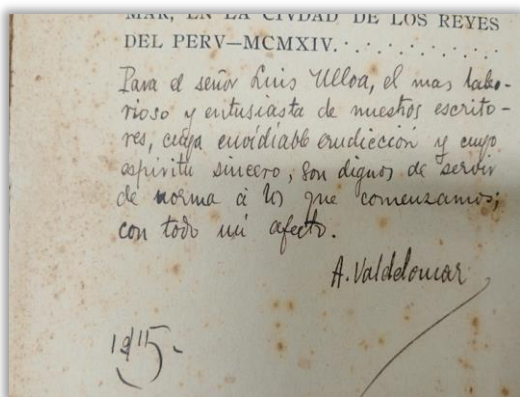 MAR, EN LA CIVDAD DE LOS REYES
DEL PERV—MCMXIV. . . . . . . . . . .
Para el señor Luis Ulloa, el mas labo-
rioso y entusiasta de nuestros escrito-
res, cuya envidiable erudicción y cuyo
espiritu sincero, son dignos de servir
de norma á los que comenzamos;
con todo mi afecto.
A. Valdelomar
1915-